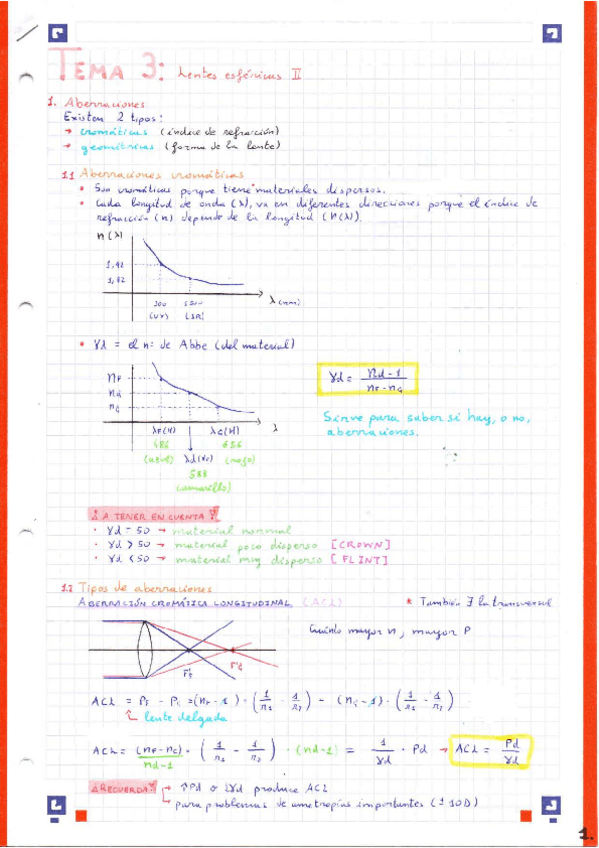 TEMA 3: Lentes esféricas II
1. Aberraciones
Existen 2 tipos:
→ cromáticas (índice de refracción)
→ geométricas (forma de la lente)
1.1 Aberraciones cromáticas
• Son cromáticas porque tiene materiales dispersos.
• Cada longitud de onda (λ), va en diferentes direcciones porque el índice de
refracción (n) depende de la longitud (n(λ)).
n(λ)
1,92
1,82
300
(UV) (IR)
λ(nm)
• γd = el nº de Abbe (del material)
nF
nd
nC
λF(H) λC(H) λ
486 656
(azul) λd(He) (rojo)
588
(amarillo)
γd = nd-1 / nF-nC
Sirve para saber si hay, o no,
aberraciones.
A TENER EN CUENTA
• γd = 50 → material normal
• γd > 50 → material poco disperso [CROWN]
• γd < 50 → material muy disperso [FLINT]
1.2 Tipos de aberraciones
ABERRACIÓN CROMÁTICA LONGITUDINAL (ACL) * También ∃ la transversal
Cuánto mayor n, mayor P
F'F F'C
ACL = PF - PC = (nF-1) · (1/r1 - 1/r2) - (nC-1) · (1/r1 - 1/r2)
lente delgada
ACL = (nF-nC)/nd-1 · (1/r1 - 1/r2) · (nd-1) = 1/γd · Pd → ACL = Pd/γd
RECUERDA → ↑Pd o ↓γd produce ACL
→ para problemas de ametropías importantes (±10D)
1.